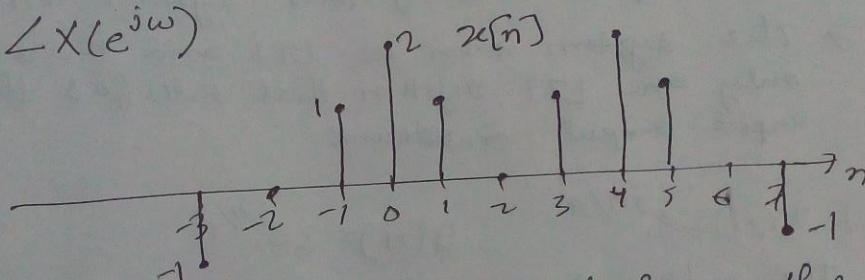 ∠X(e^{jω})
2 x[n]
1
-3 -2 -1 0 1 2 3 4 5 6 7 n
-1
-1